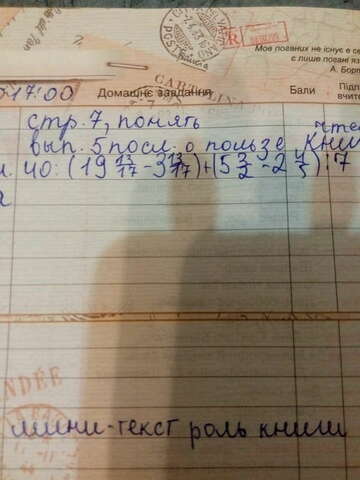 Мое поганих не існує в се
є лише погані яз
А. Бор
R
017:00
Домашнє завдання
Бали
Підп
вчите
CAROLINA
стр. 7, понять
вып. 5 посл. о пользе чте
книг
40: (19 13/17 - 3 13/17) + (5 3/2 - 2 4/5) : 7
NDÉE
мини-текст роль книги